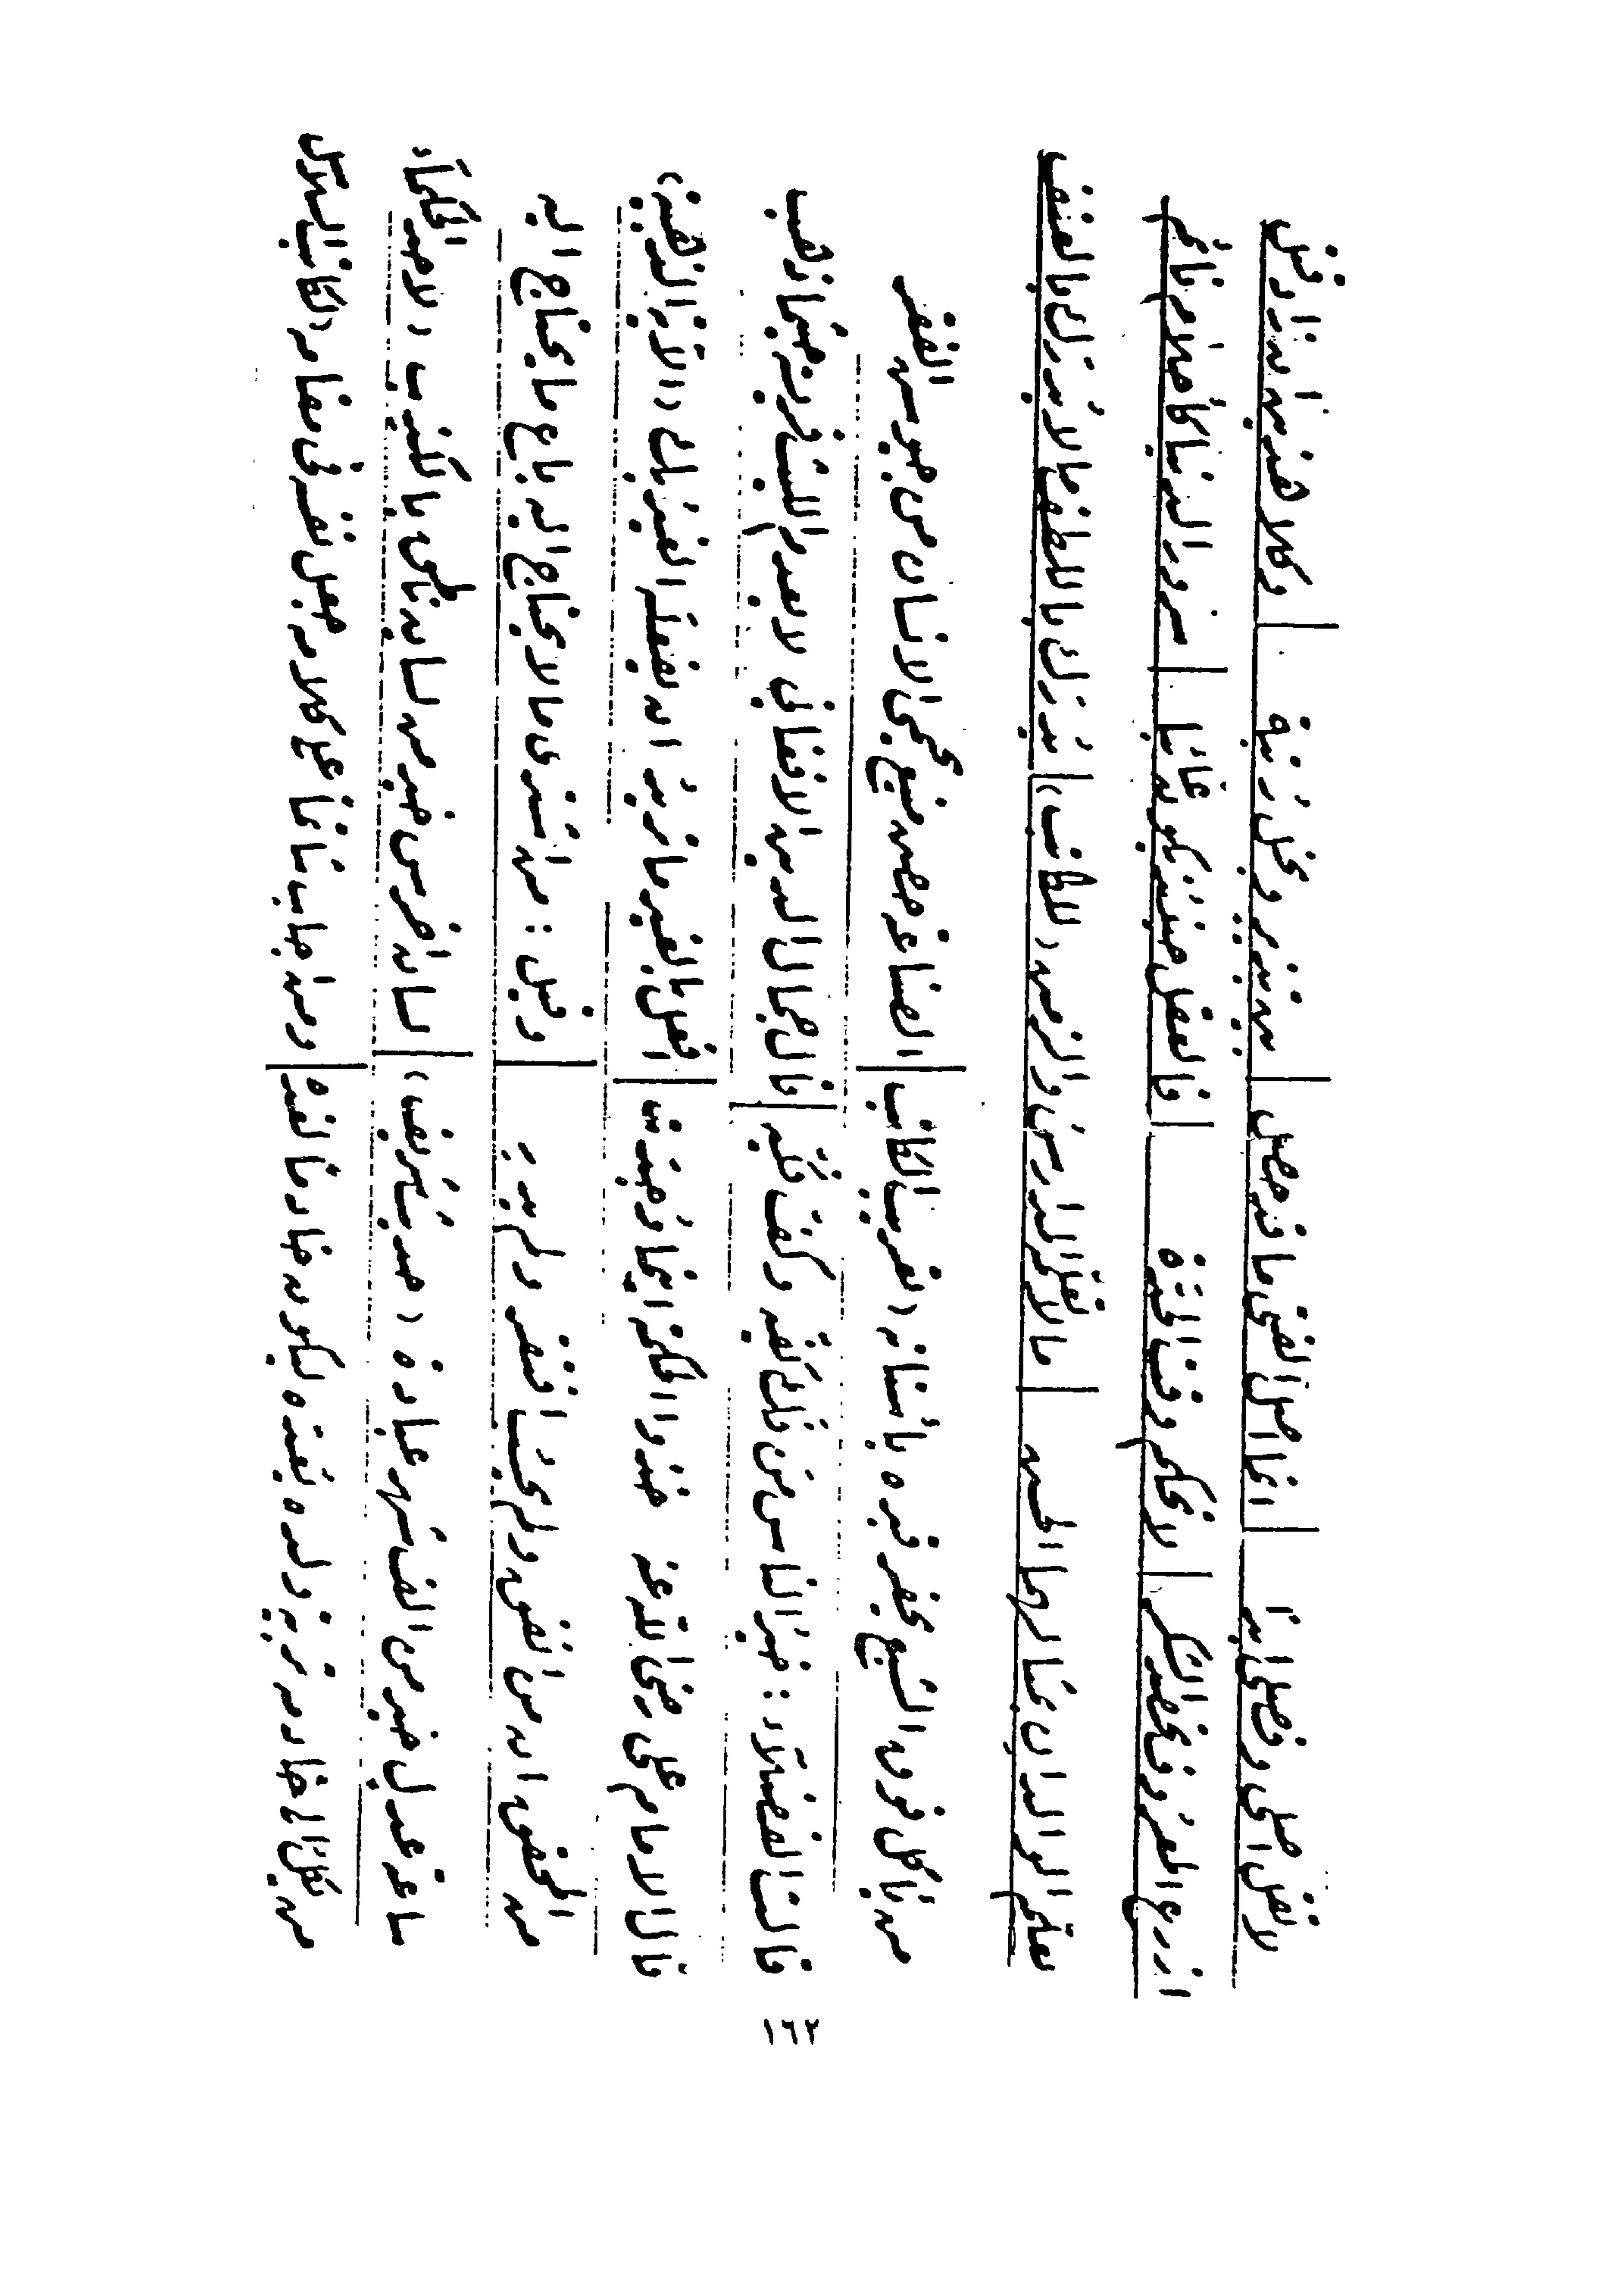 لا تقل أصلي وفصلي أبداً | إنما أصل الفتى ما قد حصل | بين تبذير وبخل رتبة | وكلا هذين إن زاد قتل
ازرع المعروف تحصد الشكر | لا تحكم وقت الحدّة | فالعقل حينئذ يكون غائباً | سرور الدنيا كأحلام نائم
يعلّم الوالدان بمثالهما الحسن | ما لا تعلّمه المدارس والزمن (للكاتب) | يُدرك باللطف ما لا يُدرك بالعنف
من يأكل فوق الشبع يحفر قبره بأسنانه (تعريب الكاتب) | الصناعة حصن منيع يحمي الانسان من جيوش الفقر
قالت الفضلاء: خير الناس من فكّ كفّه وكفّ فكّه | قال جمال الدين الافغاني لا يعدم اللبيب حيثما ذهب
قال الامام علي رضي الله عنه خذوا الحكمة اينما وُجدت | افعل بالغير ما تريد ان يفعله الغير بك (الآية الذهبية)
من المحقق ان من انفق ولم يحسب افتقر ولم يدرِ | وقيل: من اشترى ما لا يحتاج اليه باع ما يحتاج اليه
ساعة عدل خير من الف شهر عبادة (حديث شريف) | لسان أخرس خير من لسان ناطق بالكذب (لاحد الحكماء)
من تربية ولده ليكون خادماً | ومن كلامه جعل نفسه في مقامه (الكاتب
١٢٢